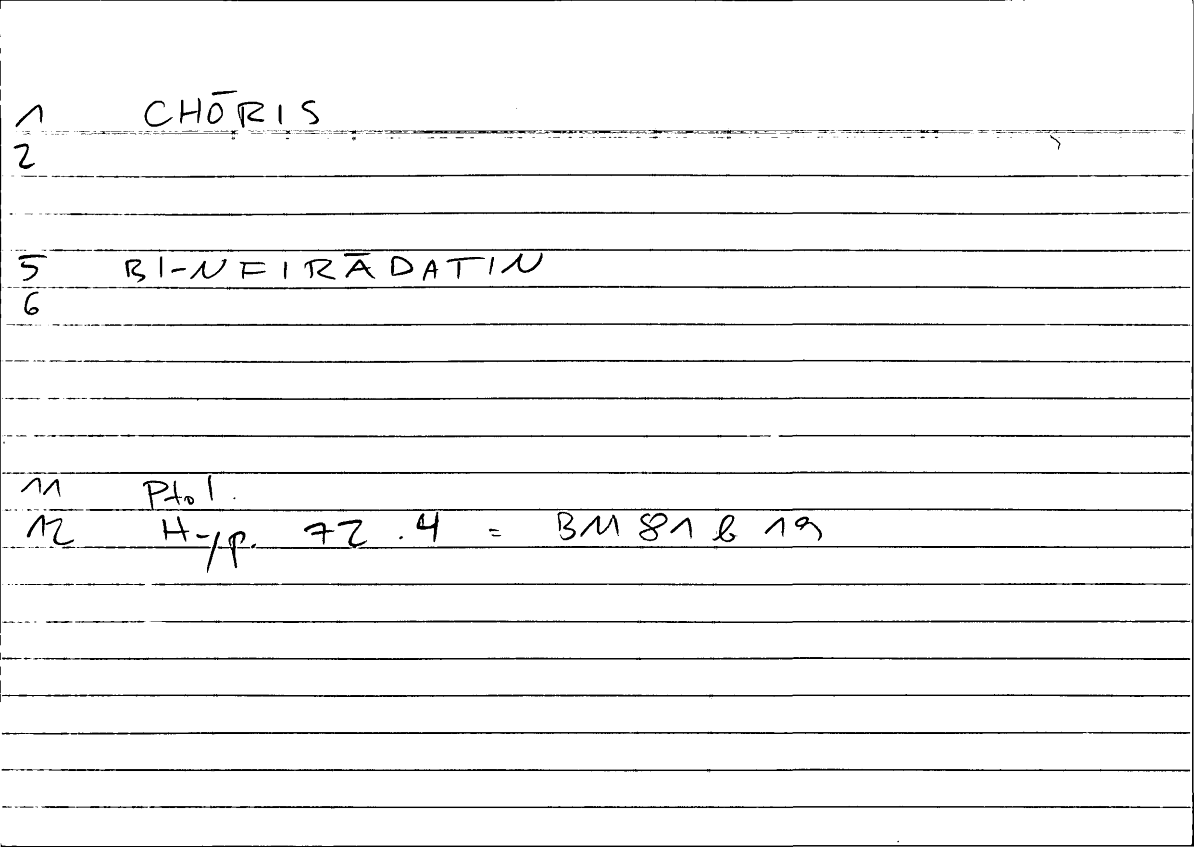 1 CHŌRIS
2
5 BI-NFIRĀDATIN
6
11 Ptol.
12 Hyp. 72.4 = BM 81 b 19